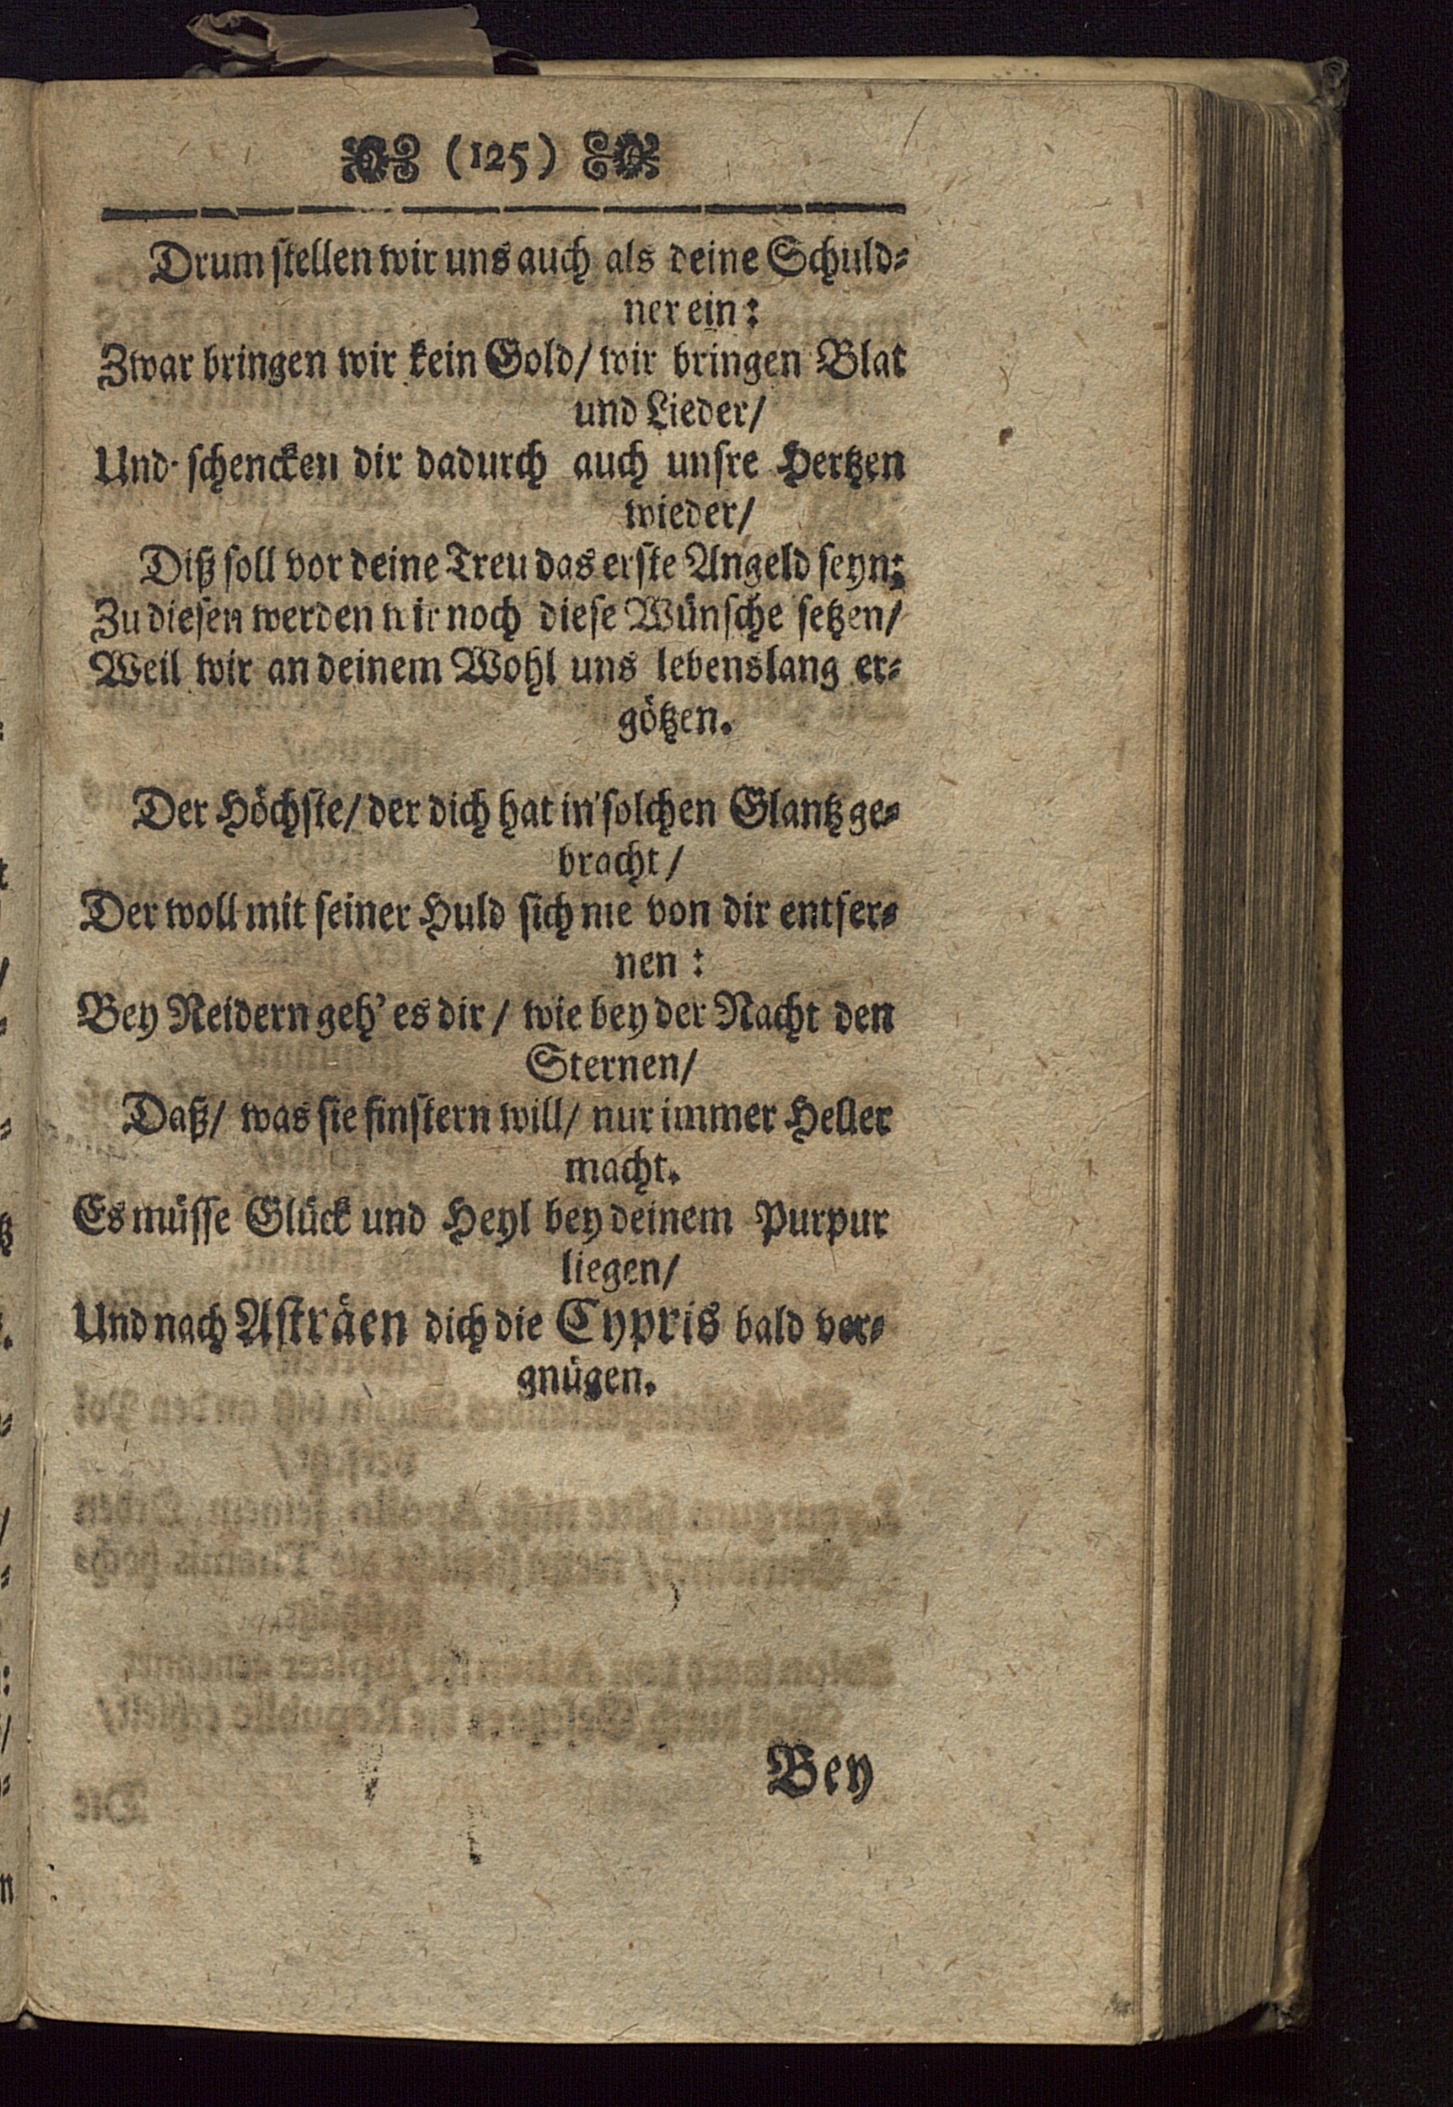 (125)
Drum stellen wir uns auch als deine Schuld-
ner ein:
Zwar bringen wir kein Gold/ wir bringen Blat
und Lieder/
Und schencken dir dadurch auch unsre Hertzen
wieder/
Diß soll vor deine Treu das erste Angeld seyn:
Zu diesen werden wir noch diese Wünsche setzen/
Weil wir an deinem Wohl uns lebenslang er-
götzen.
Der Höchste/ der dich hat in solchen Glantz ge-
bracht/
Der woll mit seiner Huld sich nie von dir entfer-
nen:
Bey Neidern geh' es dir/ wie bey der Nacht den
Sternen/
Daß/ was sie finstern will/ nur immer Heller
macht.
Es müsse Glück und Heyl bey deinem Purpur
liegen/
Und nach Asträen dich die Cypris bald ver-
gnügen.
Bey